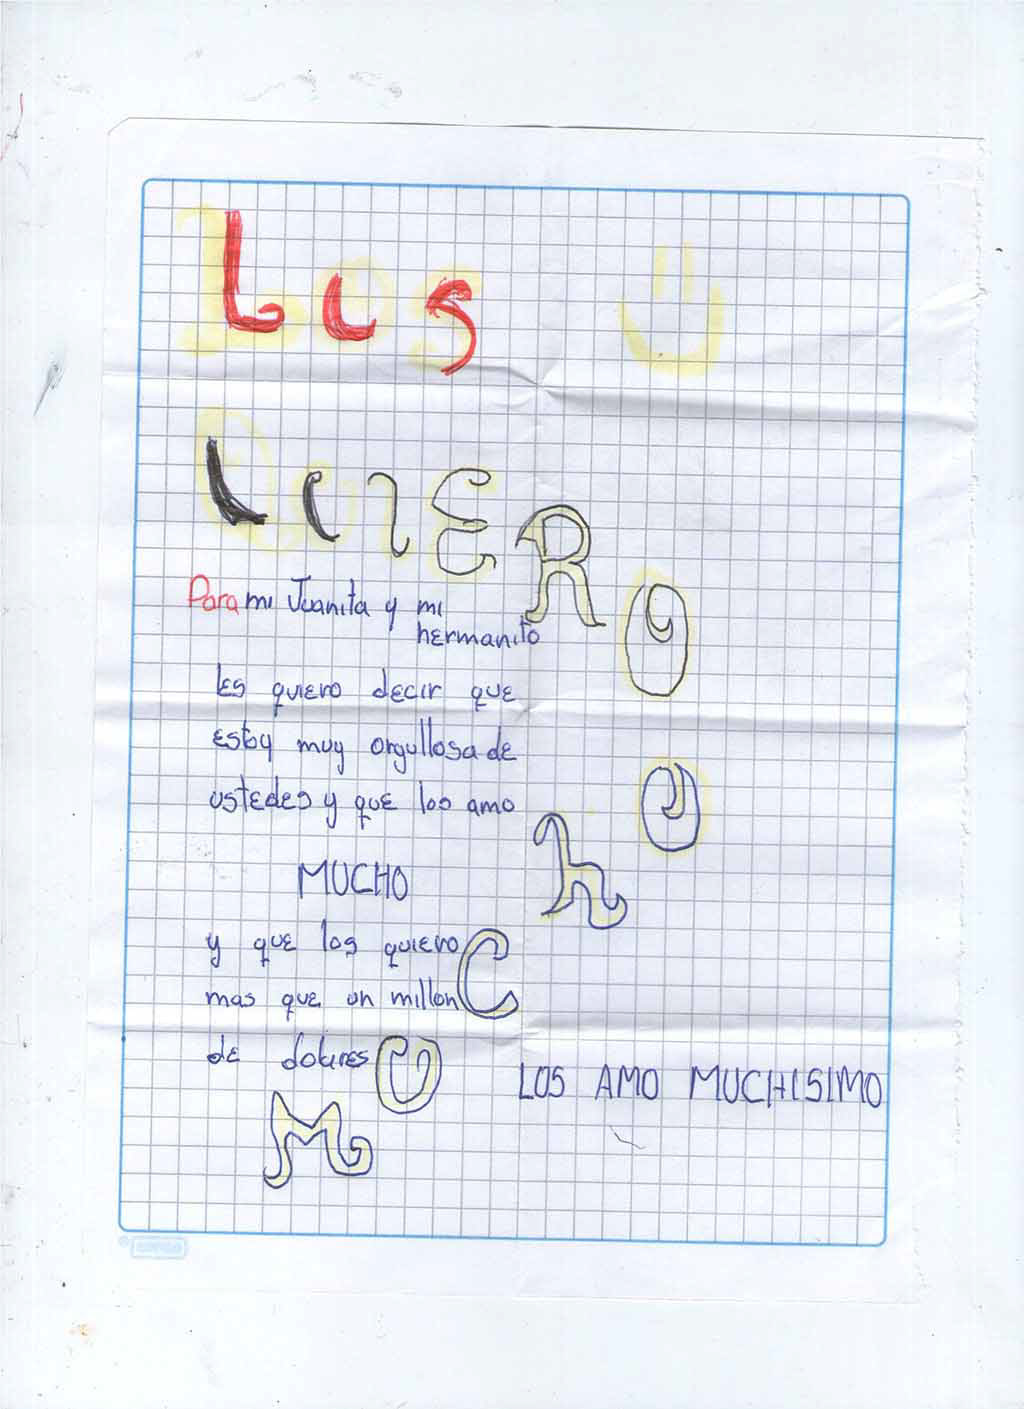 Los
QuiERO
Para mi Juanita y mi
hermanito
les quiero decir que
estoy muy orgullosa de
ustedes y que los amo
MUCHO
y que los quiero
mas que un millon
de dolares
MUChO
LOS AMO MUCHISIMO